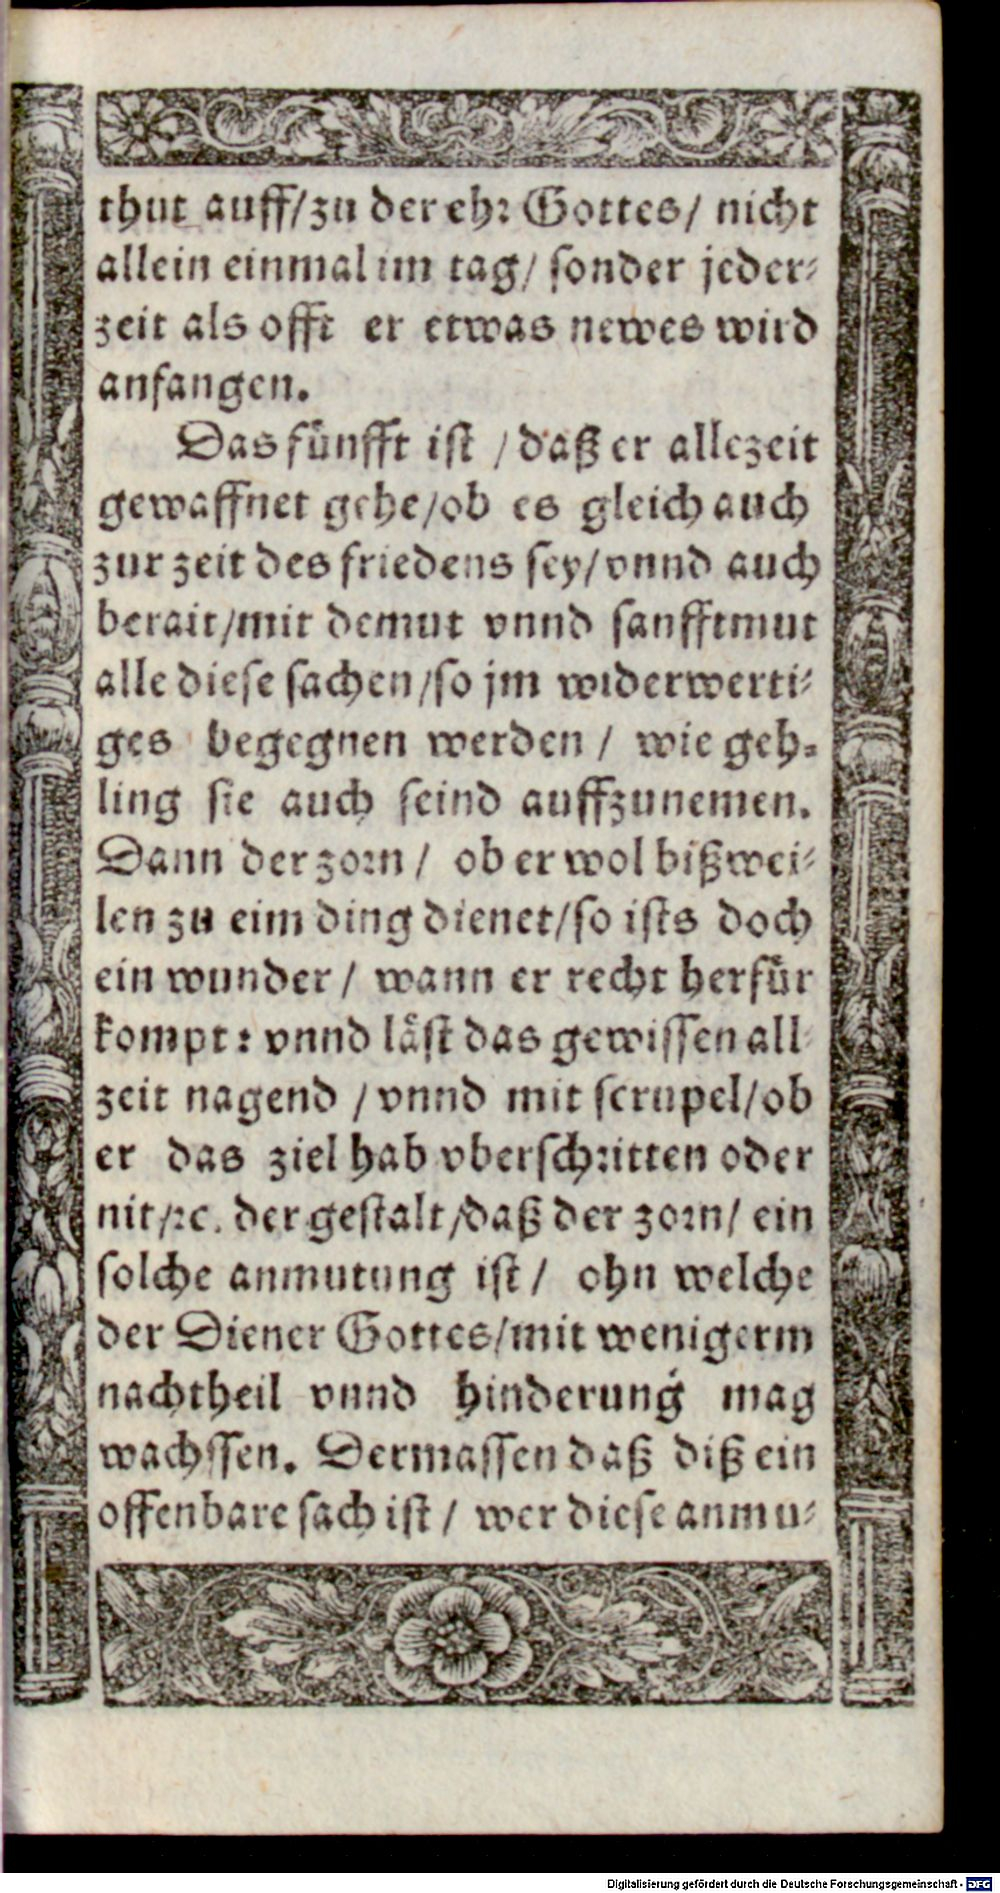 thut auff/zu der ehr Gottes/ nicht
allein einmal im tag/ sonder jeder-
zeit als offt er etwas newes wird
anfangen.
Das fünfft ist / daß er allezeit
gewaffnet gehe/ob es gleich auch
zur zeit des friedens sey/vnnd auch
berait/mit demut vnnd sanfftmut
alle diese sachen/so jm widerwerti-
ges begegnen werden / wie geh-
ling sie auch seind auffzunemen.
Dann der zorn / ob er wol bißwei-
len zu eim ding dienet/so ists doch
ein wunder / wann er recht herfür
kompt: vnnd läst das gewissen all-
zeit nagend / vnnd mit scrupel/ob
er das ziel hab vberschritten oder
nit/ꝛc. der gestalt/daß der zorn/ ein
solche anmutung ist / ohn welche
der Diener Gottes/mit wenigerm
nachtheil vnnd hinderung mag
wachssen. Dermassen daß diß ein
offenbare sach ist / wer diese anmu-
Digitalisierung gefördert durch die Deutsche Forschungsgemeinschaft - DFG